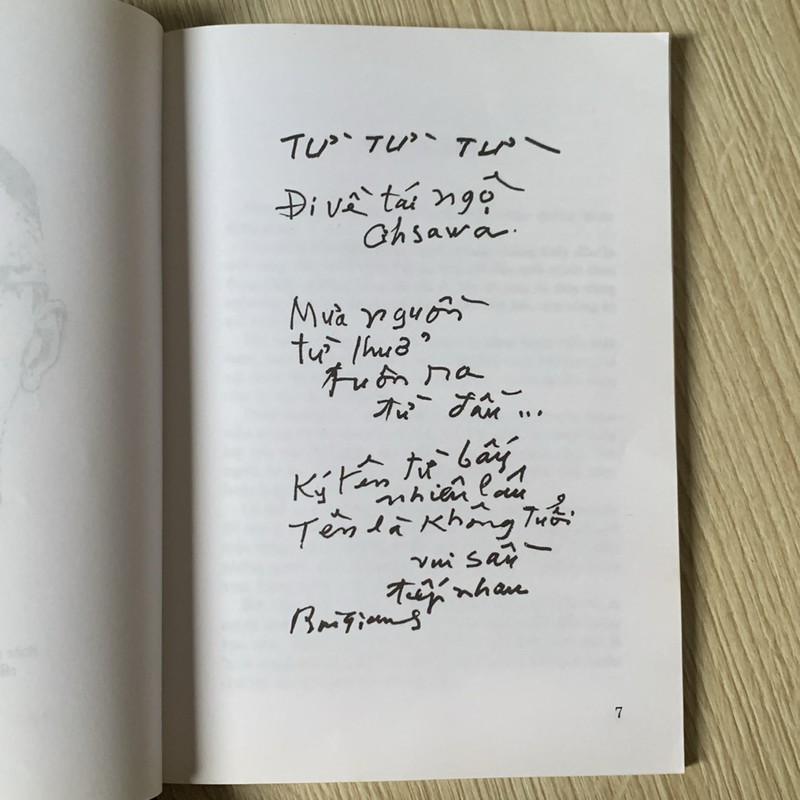 Từ Từ Từ
Đi về tái ngộ
Ohsawa.
Mưa nguồn
từ thuở
tuôn ra
từ đầu...
Ký tên từ bấy
nhiên lâu
Tên là Không Tuổi
vui sầu
tiếp nhau
Bùi Giáng
7